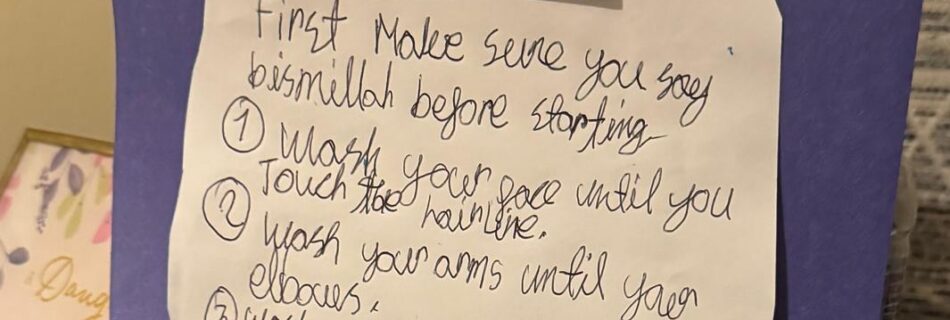 First Make sure you say
bismillah before starting
① Wash your face until you
Touch the hairline.
② Wash your arms until your
elbows.
③ Wash
Daug